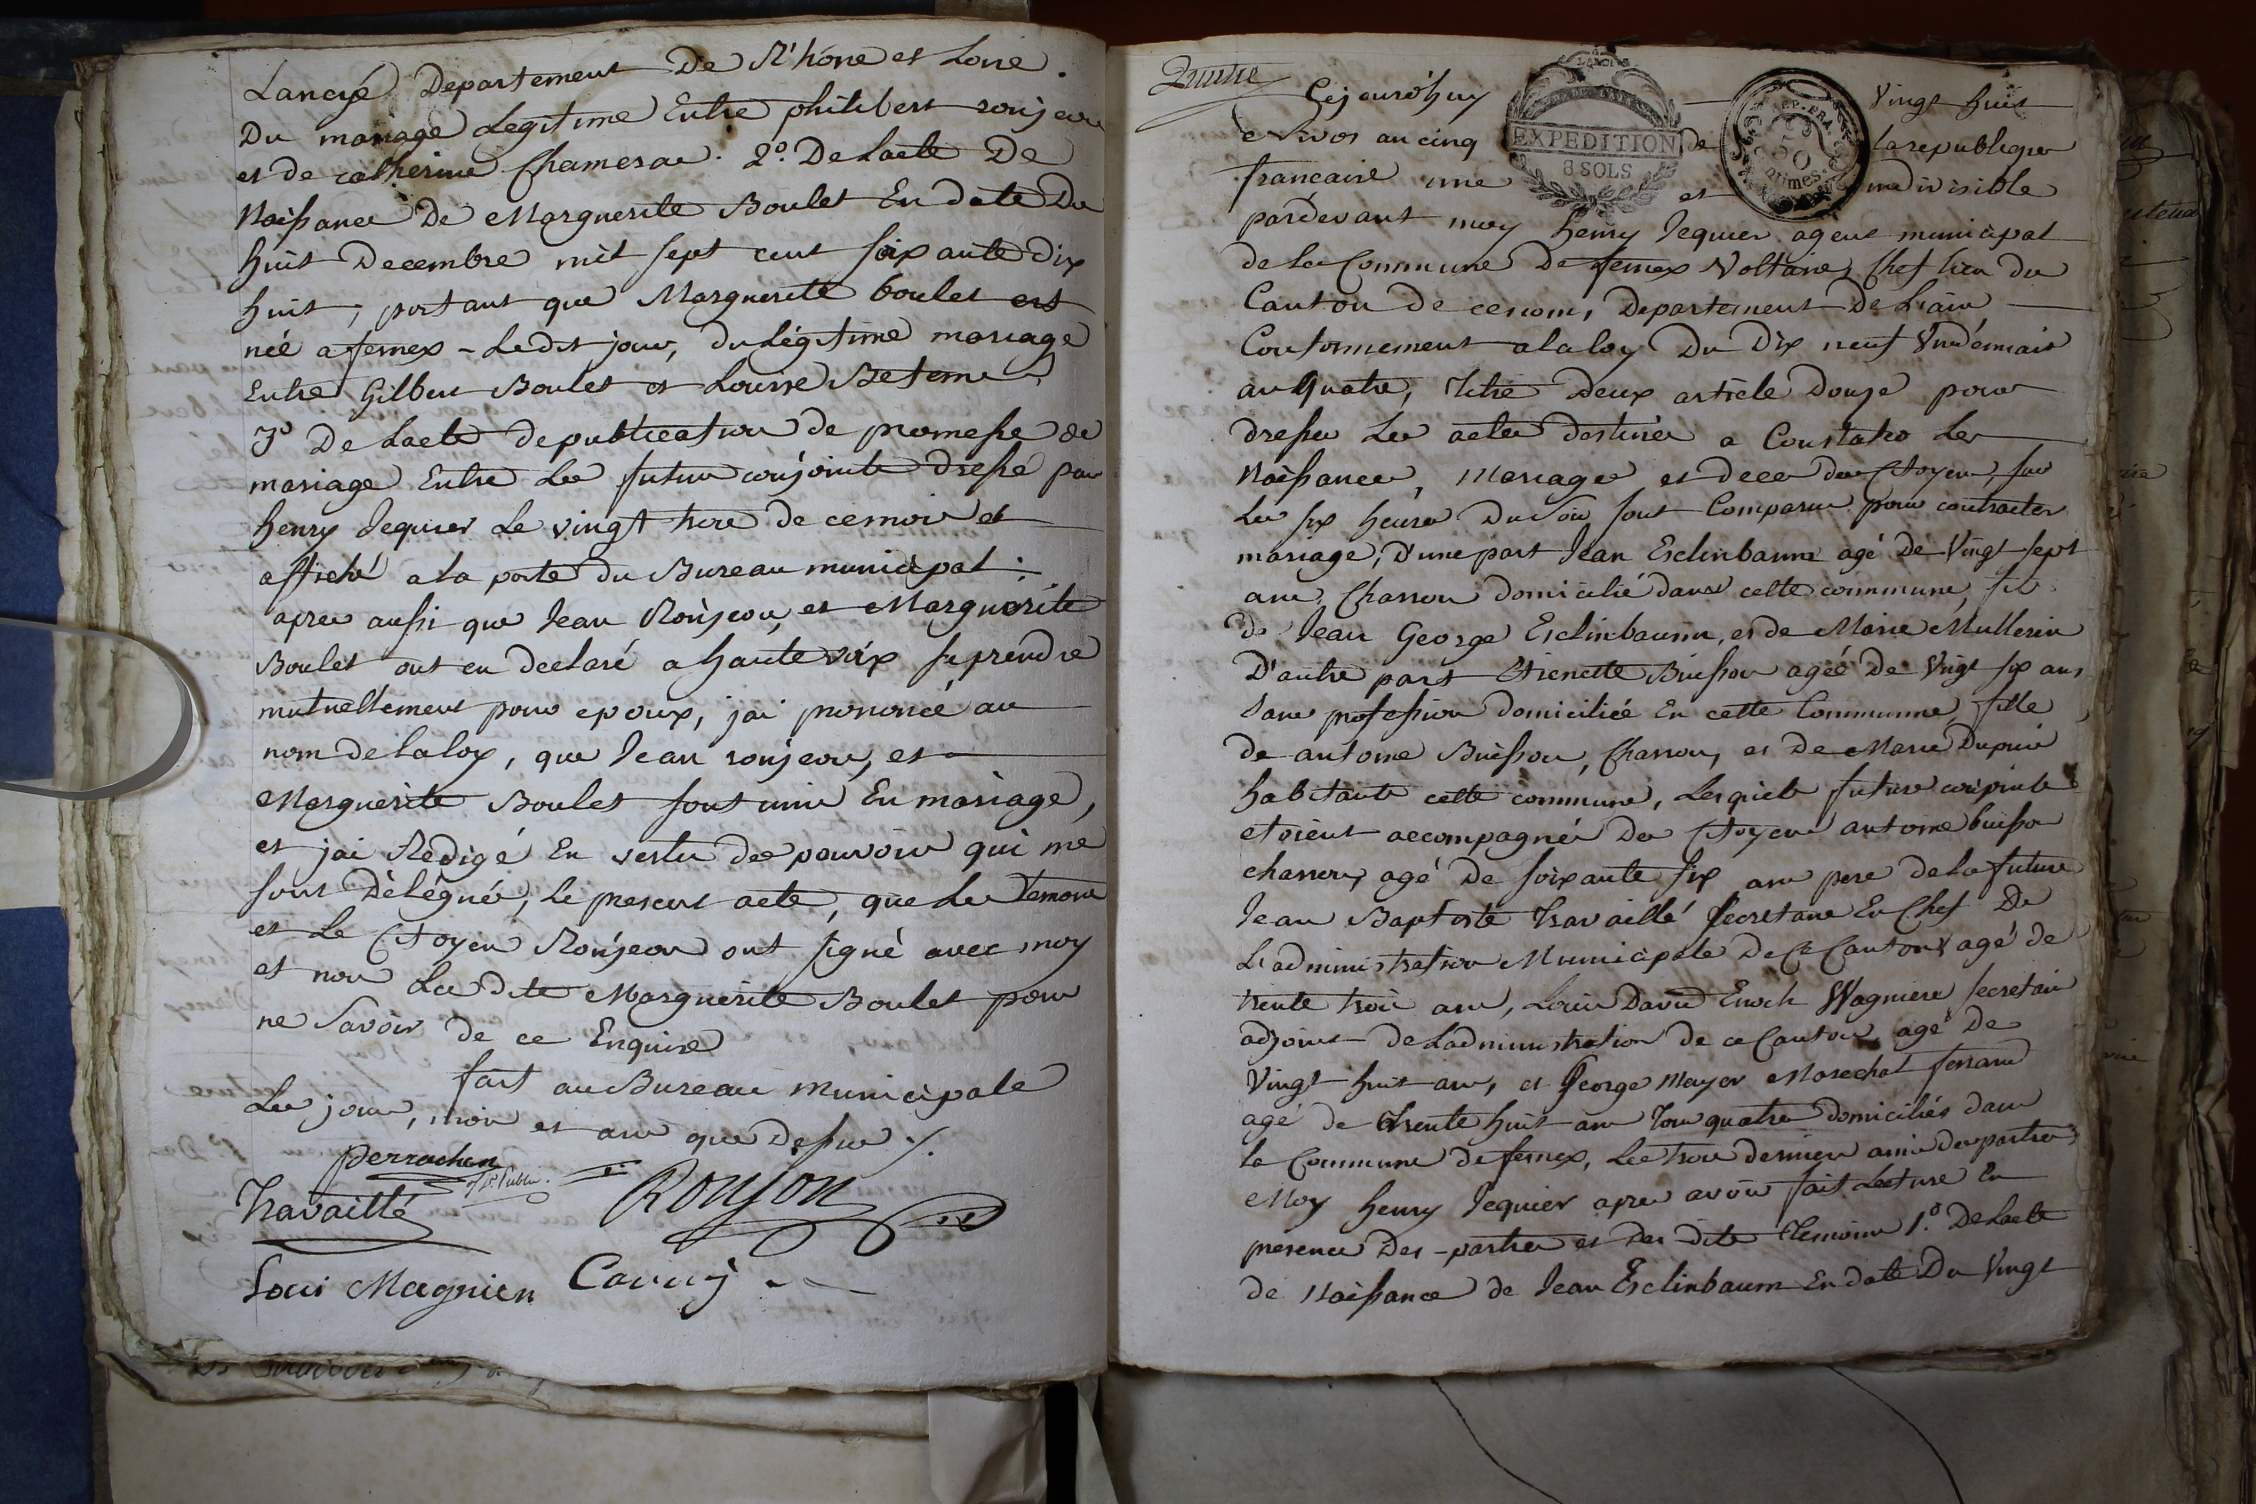 Lancyé Departement De R'hone et Loire.
Du mariage Legitime Entre philibert ronjeon
et de catherine Chameroc. 2º. De Lacte De
Naissance De Marguerite Boulet En date Du
huit Decembre mil sept cent soixante dix
huit, portant que Marguerite boulet est
née a fernex - Ledit jour, du légitime mariage
Entre Gilbert Boulet et Louise Betems
3º De Lacte de publication de promesse de
mariage Entre Les futurs conjoints dressé par
henry Jequier Le vingt trois de ce mois et
affiché a la porte du Bureau municipal:
apres aussi que Jean Ronjeon, et Marguerite
Boulet ont eu declaré a haute voix se prendre
mutuellement pour epoux, jai prononcé au
nom de la loy, que Jean ronjeon, et
Marguerite Boulet sont unis En mariage,
et jai Redigé En vertu des pouvoirs qui me
sont Délégués, Le present acte, que Les Temoins
et Le Citoyen Ronjeon ont signé avec moy
et non La dite Marguerite Boulet pour
ne Savoir de ce Enquise
fait au Bureau municipale
Les jour, mois et an que dessus ./.
Perrachon
Travaillé
Ronjon
Loui Magnien
Cauvy
Cejourd'huy Vingt huit
Nivos an cinq de la republique
francaise une et indivisible
pardevant moy henry Jequier agent municipal
de la Commune De fernex Voltaire, Chef lieu du
Canton de ce nom, Departement De L'ain
Conformement a la loy Du Dix neuf Vendémiair
an Quatre, Titre Deux article Douze pour
dresser Les actes destinés a Constater Les
Naissances, Mariages et deces des Citoyens, sur
Les six heures Du Soir sont Comparus pour contracter
mariage, D'une part Jean Esclinbaum agé De Vingt sept
ans Charron domicilié dans cette commune, fils
de Jean George Esclinbaum, et de Marie Mullerin
D'autre part Etienette Buisson agéé De Vingt six ans
Sans profession domiciliée En cette Commune, fille
de antoine Buisson, Charron, et De Marie Dupuis
habitants cette commune, Lesquels futurs conjoints
etoient accompagnés Des Citoyens antoine buisson
charron, agé De soixante six ans pere de la future
Jean Baptiste Travaillé Secretaire En Chef De
L'administration Municipale De Ce Canton agé de
trente trois ans, Louis David Enoch Wagniere secretair
adjoint de L'administration de ce Canton agé De
Vingt huit ans, et George Mayer Marechal ferrand
agé de trente huit ans Tous quatre domiciliés dans
la Commune de fernex, Les trois derniers amis des parties
Moy henry Jequier apres avoir fait Lecture En
presence Des - parties et Des dits Temoins 1.º De Lacte
de Naissance de Jean Esclinbaum En date Du Vingt
EXPEDITION
8 SOLS
REP. FRA.
50